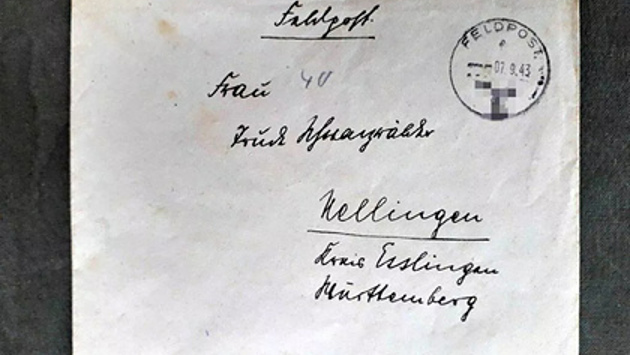 Feldpost.
FELDPOST
e
07.9.43
Frau 40
Trude Schwarzwälder
Nellingen
Kreis Esslingen
Württemberg